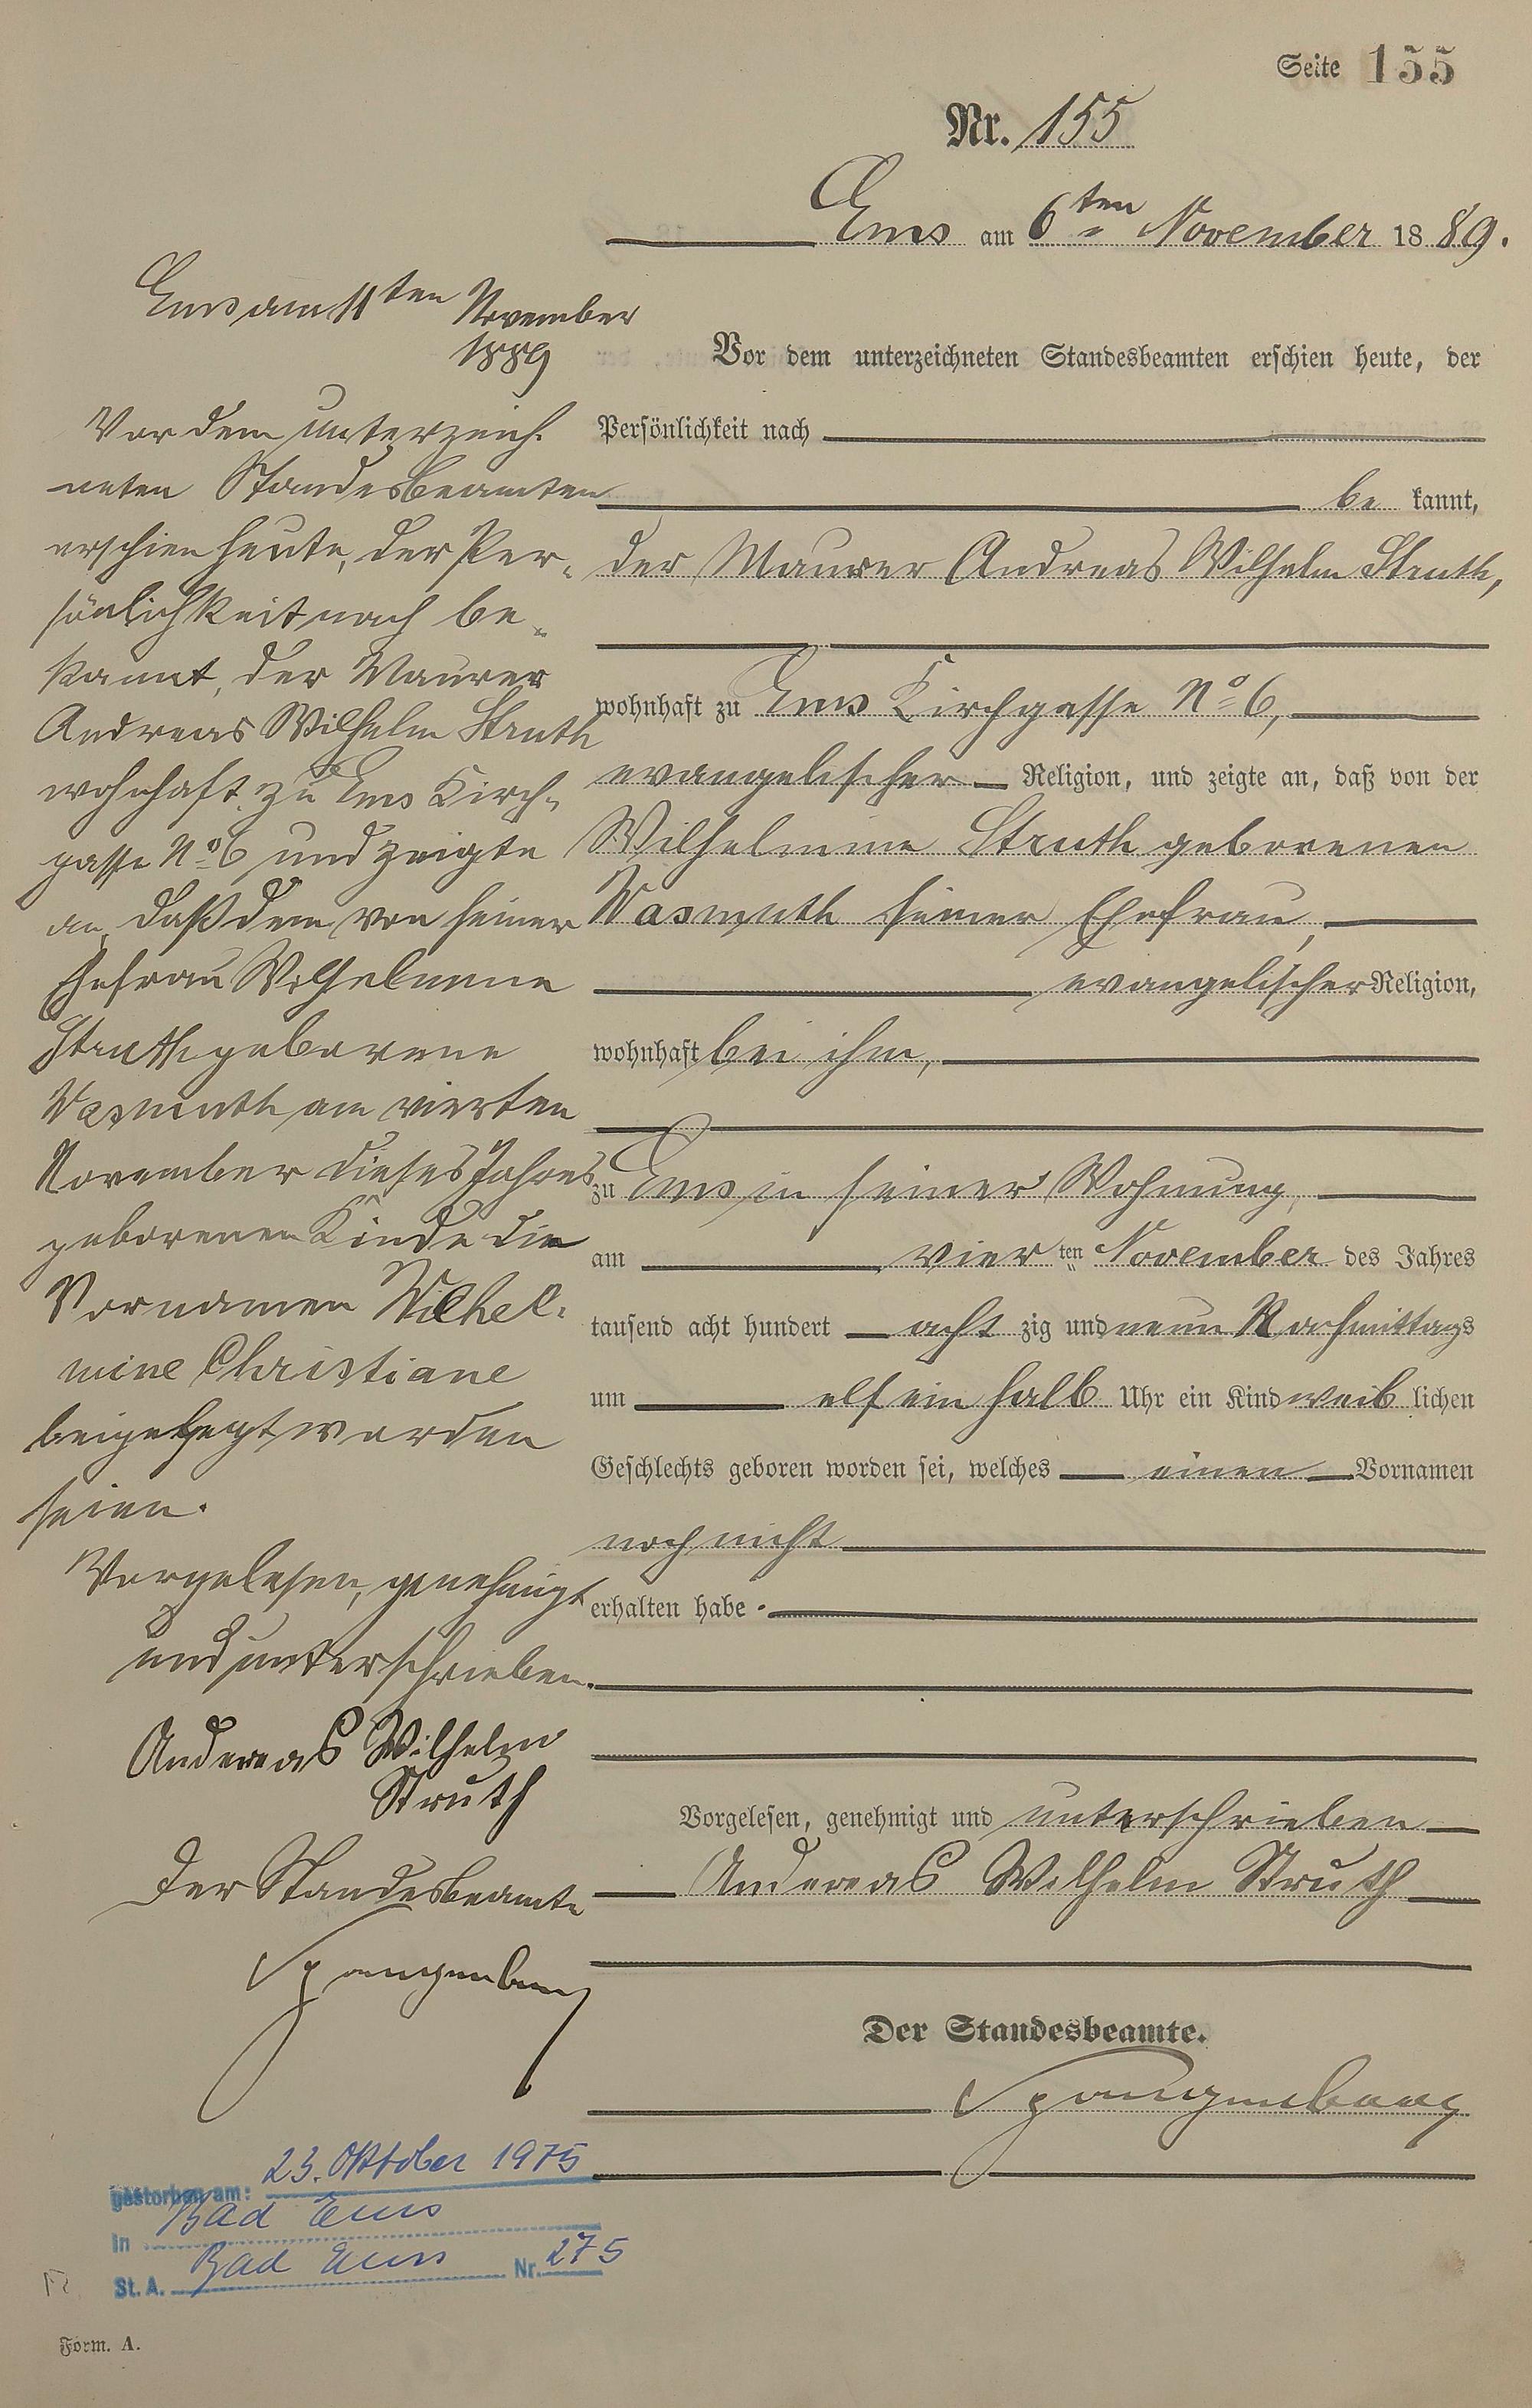 Seite 155
Nr. 155
Ems am 6ten November 1889.
Vor dem unterzeichneten Standesbeamten erschien heute, der
Persönlichkeit nach
be kannt,
der Maurer Andreas Wilhelm Struth,
wohnhaft zu Ems Kirchgasse No 6,
evangelischer Religion, und zeigte an, daß von der
Wilhelmine Struth geborenen
Wasmuth seiner Ehefrau,
evangelischer Religion,
wohnhaft bei ihm,
zu Ems in seiner Wohnung,
am vier ten November des Jahres
tausend acht hundert acht zig und neun Nachmittags
um elf ein halb Uhr ein Kind weib lichen
Geschlechts geboren worden sei, welches einen Vornamen
noch nicht
erhalten habe.
Vorgelesen, genehmigt und unterschrieben
Andereas Wilhelm Struth
Der Standesbeamte.
Spangenberg
Ems am 11ten November
1889
Vor dem unterzeich-
neten Standesbeamten
erschien heute, der Per-
sönlichkeit nach be-
kannt, der Maurer
Andreas Wilhelm Struth
wohnhaft zu Ems Kirch-
gasse No 6 und zeigte
an, daß dem von seiner
Ehefrau Wilhelmine
Struth geborene
Wasmuth am vierten
November dieses Jahres
geborenen Kinde die
Vornamen Wilhel-
mine Christiane
beigelegt worden
seien.
Vorgelesen, genehmigt
und unterschrieben.
Andereas Wilhelm
Struth
Der Standesbeamte
Spangenberg
gestorben am: 23. Oktober 1975
in Bad Ems
St. A. Bad Ems Nr. 275
Form. A.